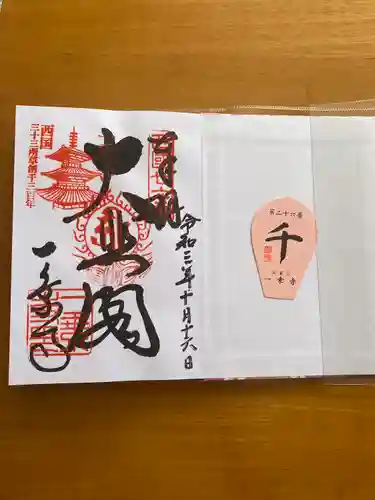 奉拝
令和三年十月十六日
大悲閣
西国
三十三所草創千三百年
一乗寺
第二十六番
千
一乗寺